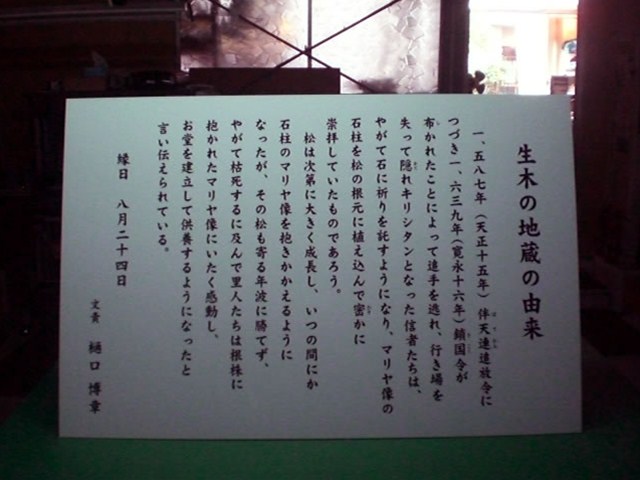 生木の地蔵の由来
一、五八七年（天正十五年）伴天連追放令に
つづき一、六三九年（寛永十六年）鎖国令が
布かれたことによって追手を逃れ、行き場を
失って隠れキリシタンとなった信者たちは、
やがて石に祈りを託すようになり、マリヤ像の
石柱を松の根元に植え込んで密かに
崇拝していたものであろう。
松は次第に大きく成長し、いつの間にか
石柱のマリヤ像を抱きかかえるように
なったが、その松も寄る年波に勝てず、
やがて枯死するに及んで里人たちは根株に
抱かれたマリヤ像にいたく感動し、
お堂を建立して供養するようになったと
言い伝えられている。
縁日　八月二十四日
文責　樋口博章